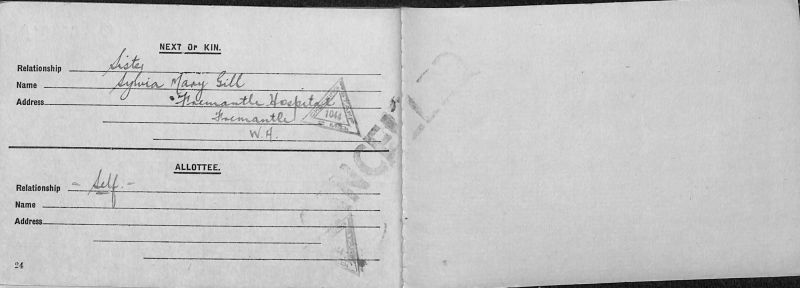 NEXT OF KIN.
Relationship Sister
Name Sylvia Mary Gill
Address Fremantle Hospital
Fremantle
W.A.
1044
CANCELLED
ALLOTTEE.
Relationship - Self. -
Name
Address
24